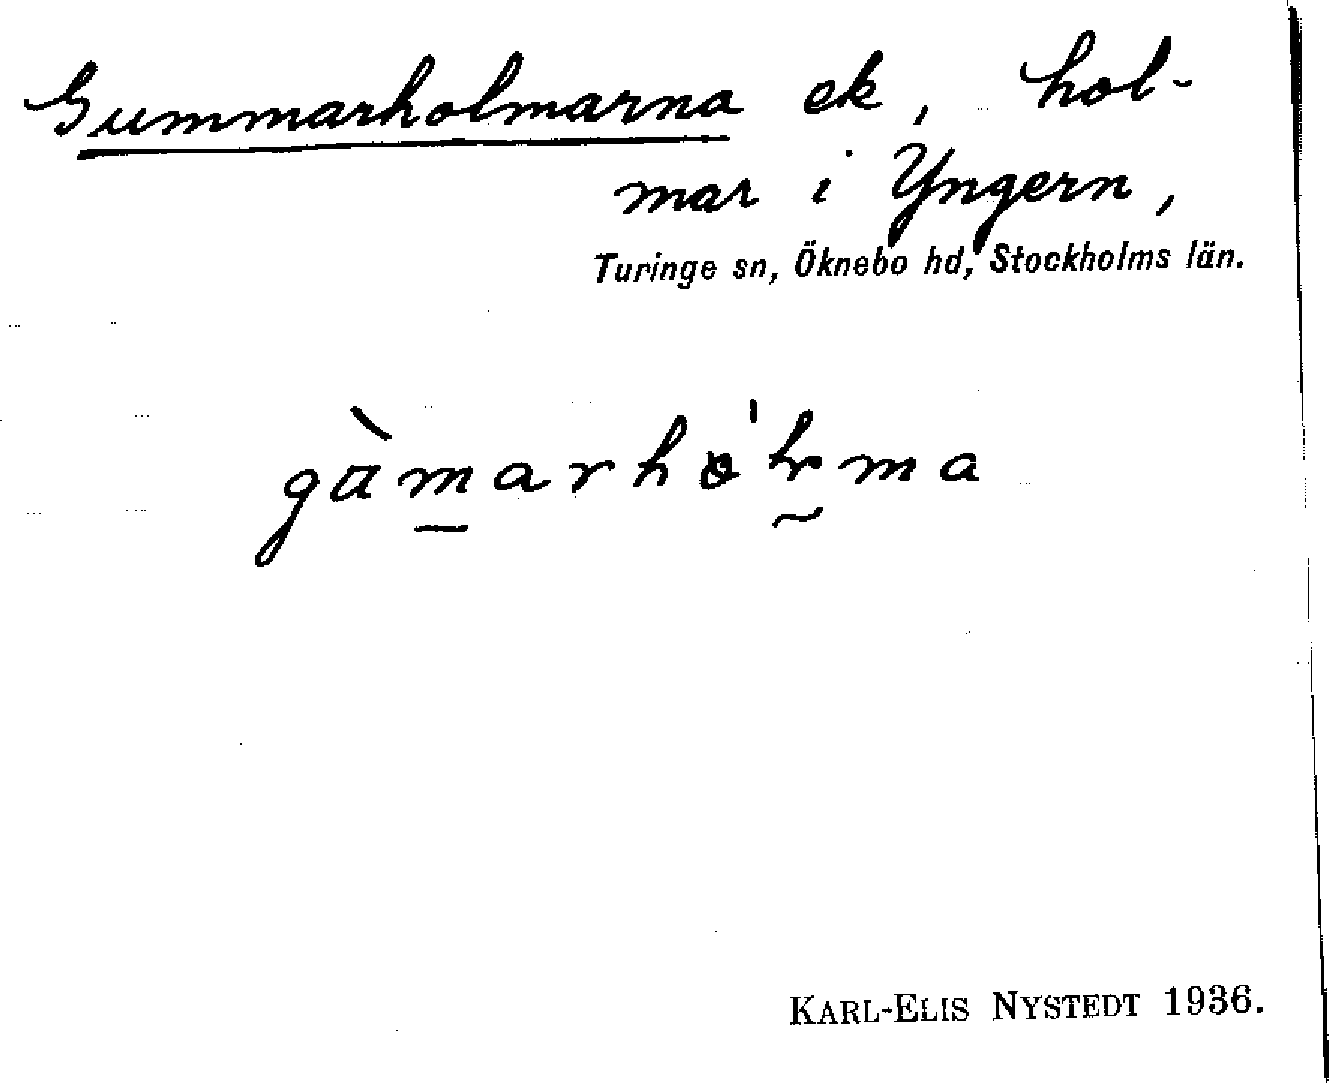 Gummarholmarna ek, hol-
mar i Yngern,
Turinge sn, Öknebo hd, Stockholms län.
KARL-ELIS NYSTEDT 1936.